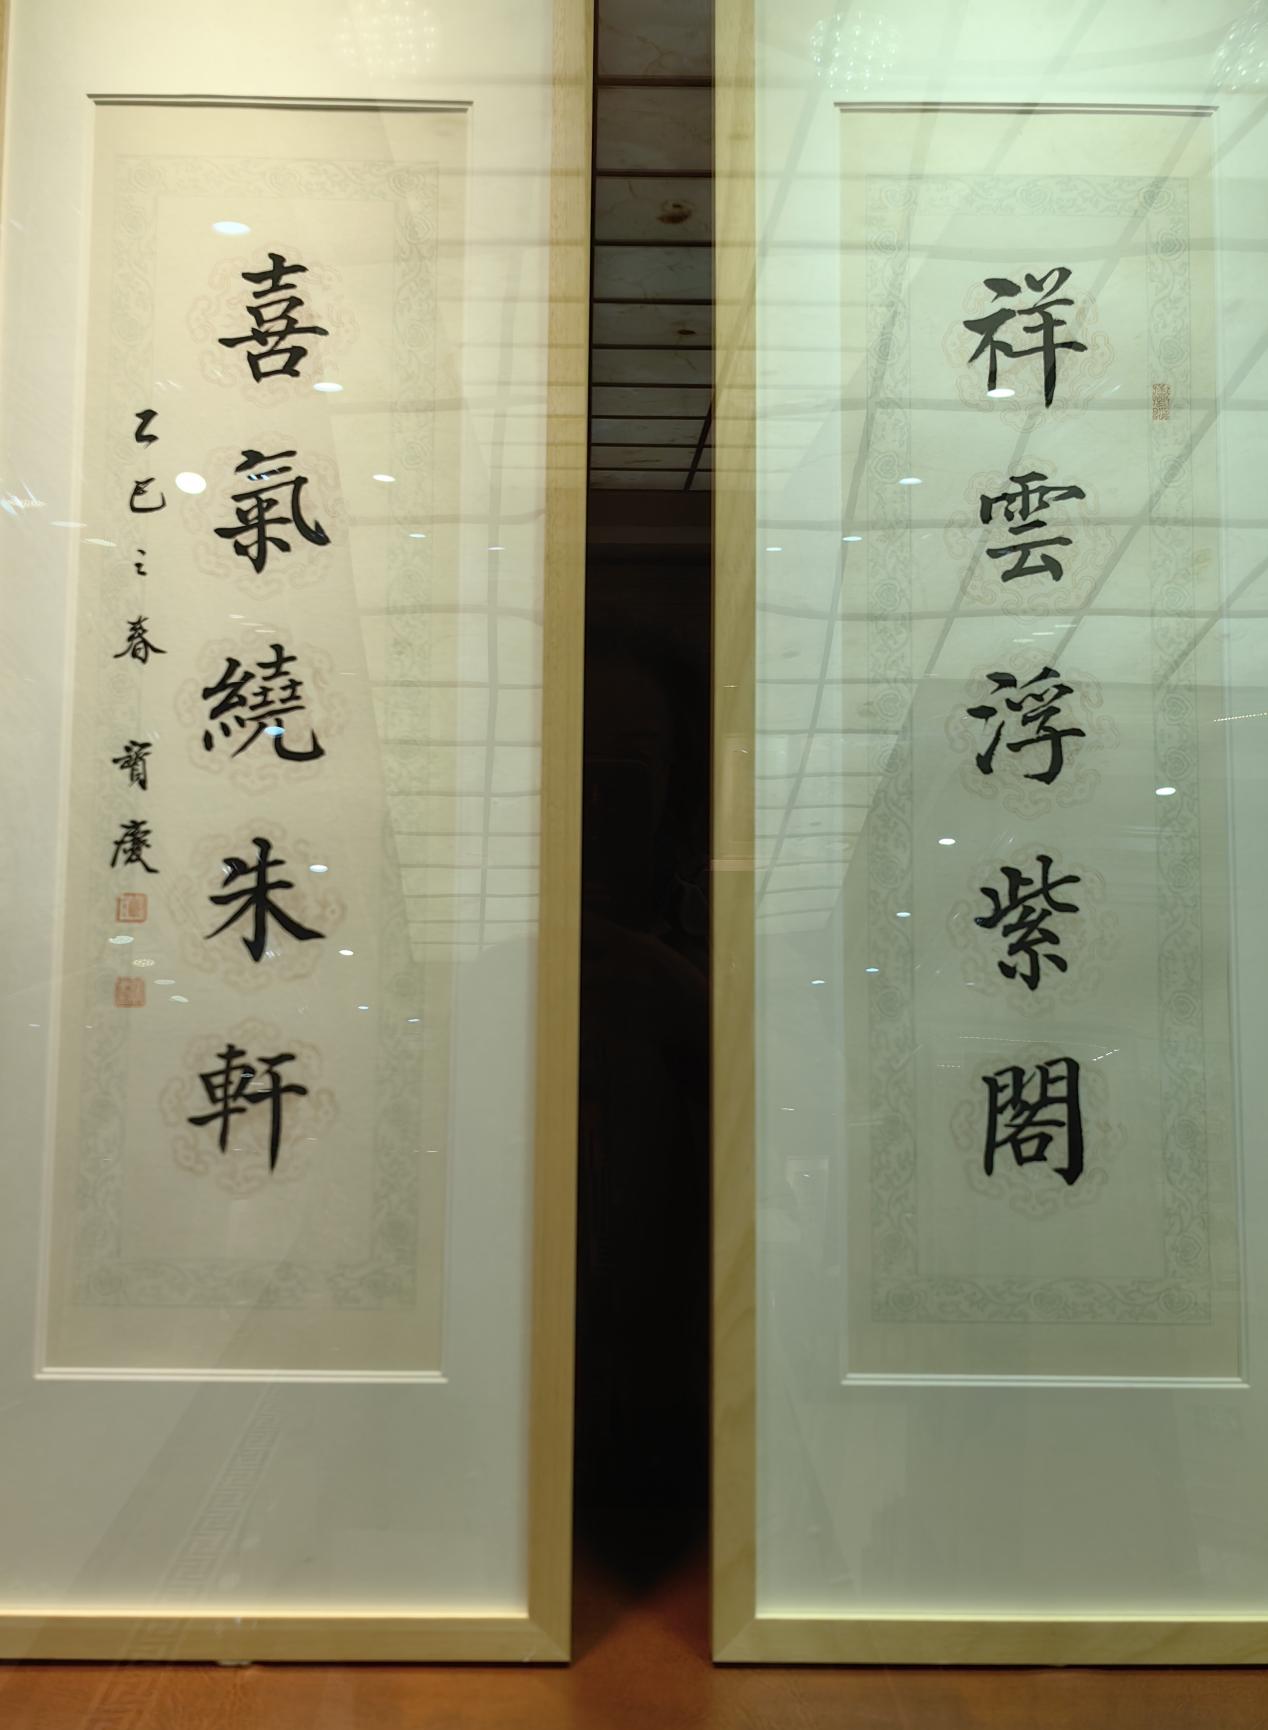 祥雲浮紫閣
喜氣繞朱軒
乙巳之春 寶慶